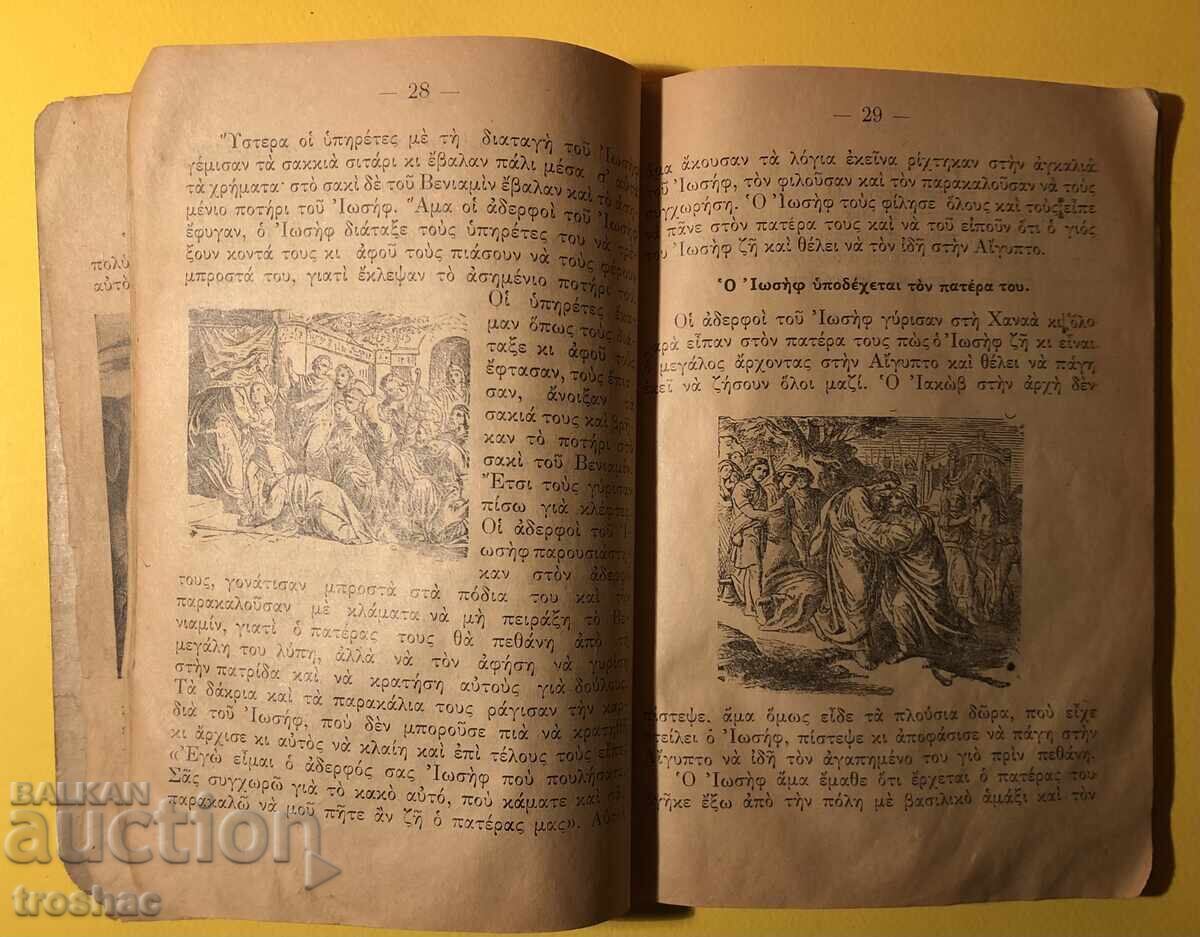 — 28 —
Ὕστερα οἱ ὑπηρέτες μὲ τὴ διαταγὴ τοῦ Ἰωσὴφ
γέμισαν τὰ σακκιὰ σιτάρι κι ἔβαλαν πάλι μέσα σ'
τὰ χρήματα· στὸ σακὶ δὲ τοῦ Βενιαμὶν ἔβαλαν καὶ τὸ
μένιο ποτήρι τοῦ Ἰωσήφ. Ἅμα οἱ ἀδερφοὶ τοῦ Ἰωσὴφ
ἔφυγαν, ὁ Ἰωσὴφ διάταξε τοὺς ὑπηρέτες του νὰ
ξουν κοντά τους κι ἀφοῦ τοὺς πιάσουν νὰ τοὺς φέρουν
μπροστά του, γιατὶ ἔκλεψαν τὸ ἀσημένιο ποτήρι του.
Οἱ ὑπηρέτες
μαν ὅπως τοὺς
ταξε κι ἀφοῦ τοὺς
ἔφτασαν, τοὺς
σαν, ἄνοιξαν
σακιά τους καὶ
καν τὸ ποτήρι
σακὶ τοῦ Βενιαμίν.
Ἔτσι τοὺς γύρισαν
πίσω γιὰ κλέφτες.
Οἱ ἀδερφοὶ τοῦ
ωσὴφ
καν στὸν
τους, γονάτισαν μπροστὰ στὰ πόδια του καὶ
παρακαλοῦσαν μὲ κλάματα νὰ μὴ πειράξη τὸ
νιαμίν, γιατὶ ὁ πατέρας τους θὰ πεθάνη ἀπὸ
μεγάλη του λύπη, ἀλλὰ νὰ τὸν ἀφήση νὰ γυρίση
στὴν πατρίδα καὶ νὰ κρατήση αὐτοὺς γιὰ δούλους.
Τὰ δάκρια καὶ τὰ παρακάλια τους ράγισαν τὴν
διὰ τοῦ Ἰωσήφ, ποὺ δὲν μποροῦσε πιὰ νὰ κρατηθῆ
κι ἄρχισε κι αὐτὸς νὰ κλαίη καὶ ἐπὶ τέλους τοὺς εἶπε
«Ἐγὼ εἶμαι ὁ ἀδερφός σας Ἰωσὴφ ποὺ
Σᾶς συγχωρῶ γιὰ τὸ κακὸ αὐτό, ποὺ κάματε καὶ
παρακαλῶ νὰ μοῦ πῆτε ἂν ζῆ ὁ πατέρας μας».
πολύ
αὐτὸ
— 29 —
ἅμα ἄκουσαν τὰ λόγια ἐκεῖνα ρίχτηκαν στὴν ἀγκαλιὰ
τοῦ Ἰωσήφ, τὸν φιλοῦσαν καὶ τὸν παρακαλοῦσαν νὰ τοὺς
συγχωρήση. Ὁ Ἰωσὴφ τοὺς φίλησε ὅλους καὶ τοὺς εἶπε
νὰ πᾶνε στὸν πατέρα τους καὶ νὰ τοῦ εἰποῦν ὅτι ὁ γιός
του Ἰωσὴφ ζῆ καὶ θέλει νὰ τὸν ἰδῆ στὴν Αἴγυπτο.
Ὁ Ἰωσὴφ ὑποδέχεται τὸν πατέρα του.
Οἱ ἀδερφοὶ τοῦ Ἰωσὴφ γύρισαν στὴ Χαναὰ κι ὅλο
χαρὰ εἶπαν στὸν πατέρα τους πὼς ὁ Ἰωσὴφ ζῆ κι εἶναι
μεγάλος ἄρχοντας στὴν Αἴγυπτο καὶ θέλει νὰ πάγη
ἐκεῖ νὰ ζήσουν ὅλοι μαζί. Ὁ Ἰακὼβ στὴν ἀρχὴ δὲν
πίστεψε. ἅμα ὅμως εἶδε τὰ πλούσια δῶρα, ποὺ εἶχε
στείλει ὁ Ἰωσήφ, πίστεψε κι ἀποφάσισε νὰ πάγη στὴν
Αἴγυπτο νὰ ἰδῆ τὸν ἀγαπημένο του γιὸ πρὶν πεθάνη.
Ὁ Ἰωσὴφ ἅμα ἔμαθε ὅτι ἔρχεται ὁ πατέρας του
βγῆκε ἔξω ἀπὸ τὴν πόλη μὲ βασιλικὸ ἁμάξι καὶ τὸν
BALKAN
auction
troshac